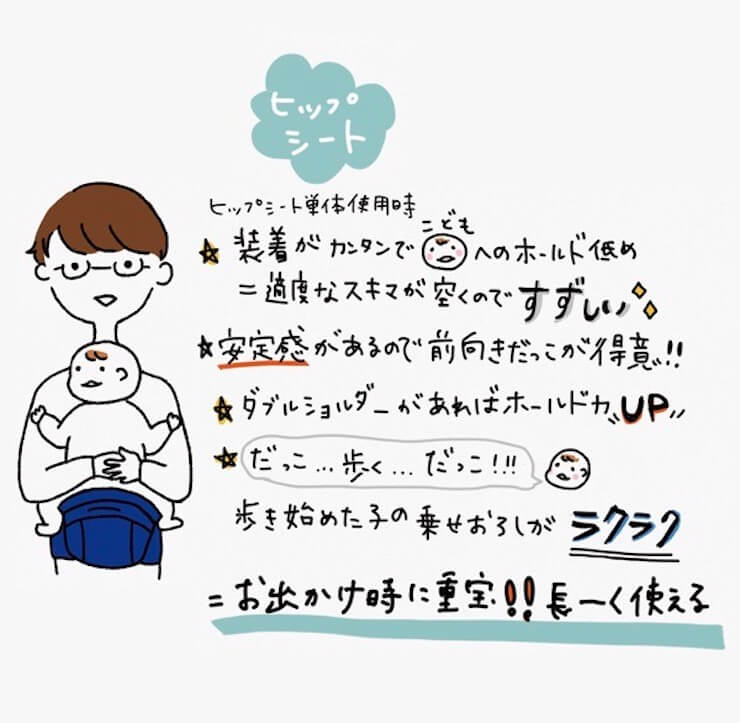 ヒップ
シート
ヒップシート単体使用時
こども
★装着がカンタンで へのホールド低め
=適度なスキマが空くのですずしい
★安定感があるので前向きだっこが得意!!
★ダブルショルダーがあればホールド力UP
★だっこ...歩く...だっこ!!!
歩き始めた子の乗せおろしがラクラク
=お出かけ時に重宝!!長ーく使える